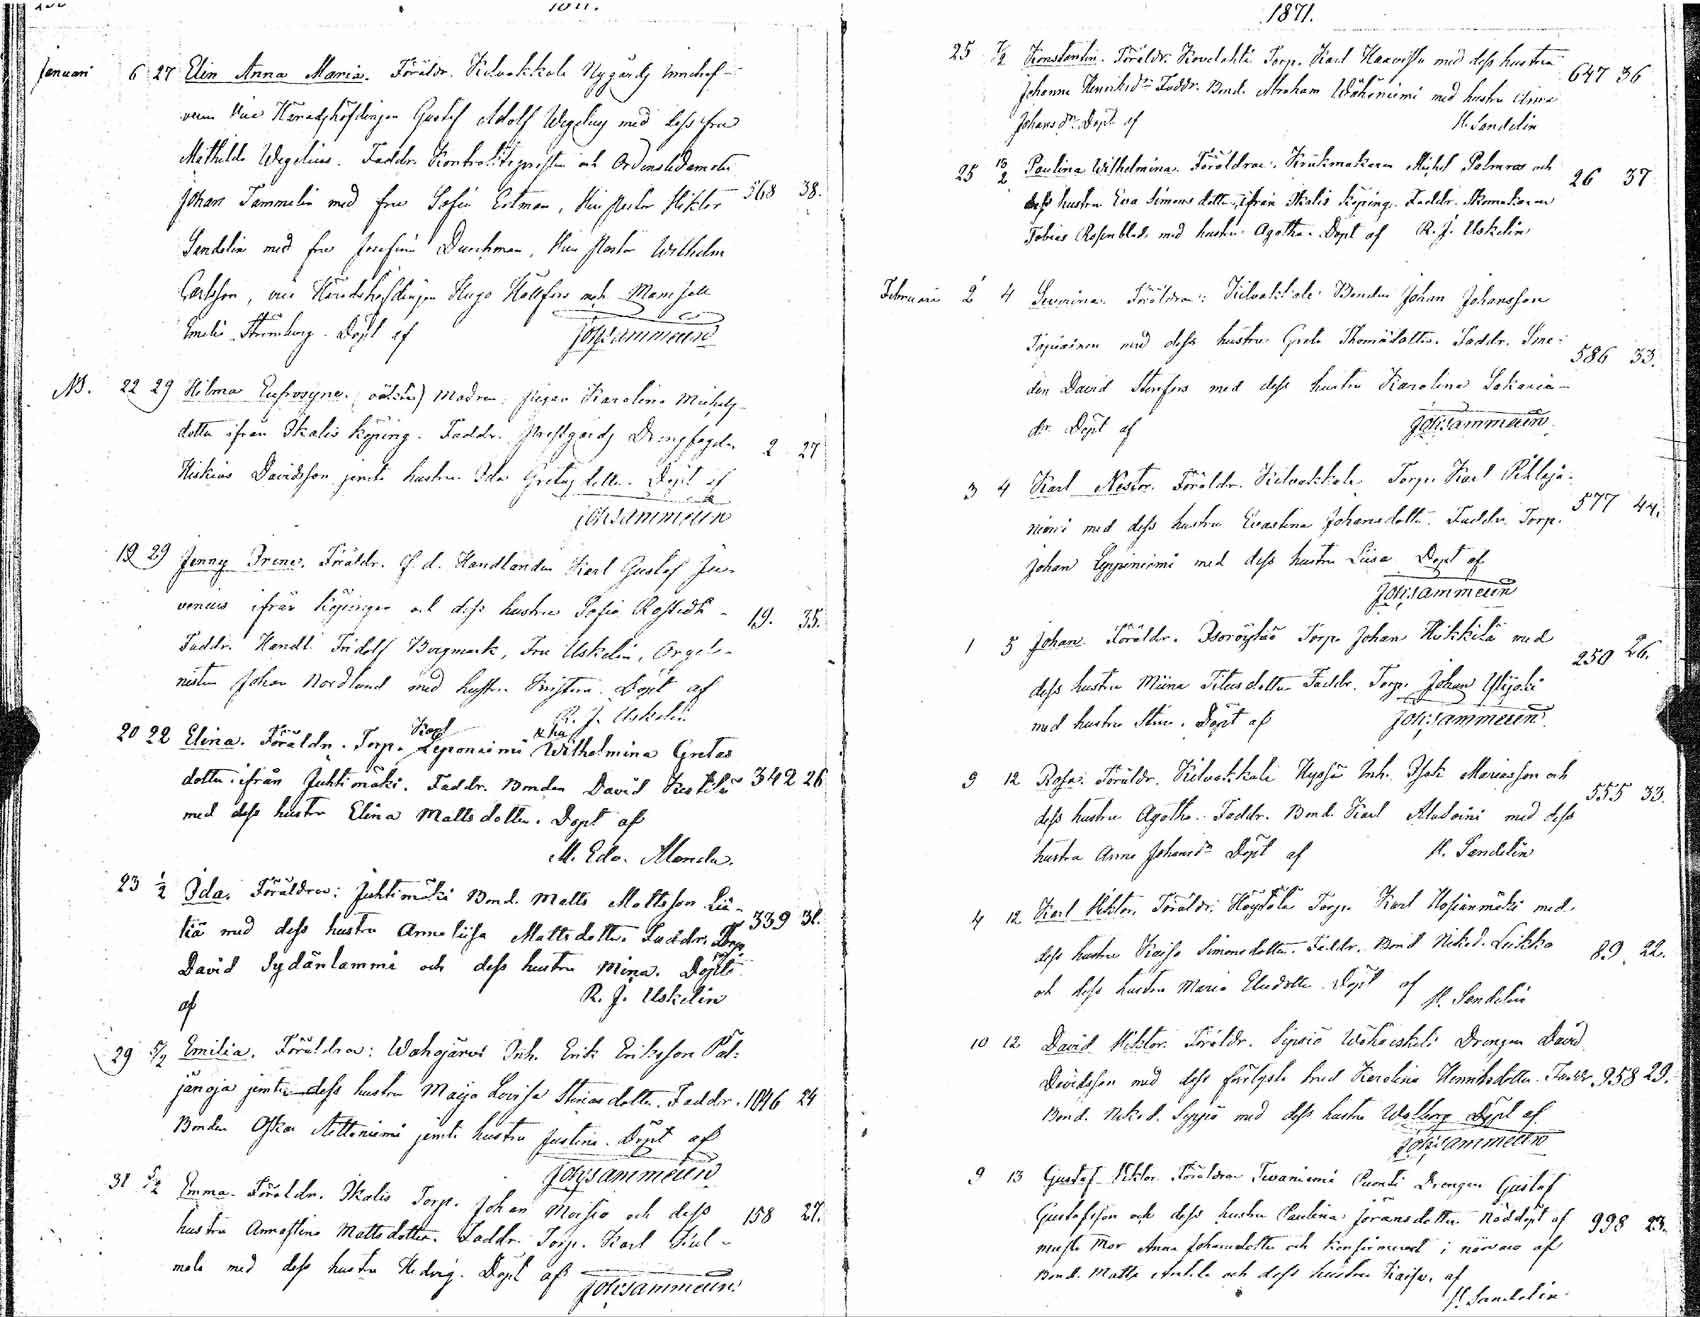 1871.
Januari 6 27 Elin Anna Maria. Föräldr. Kilvakkala Nygårds innehaf-
varen Vice Häradshöfdingen Gustaf Adolf Wegelius med dess fru
Mathilda Wegelius. Faddr. Kontraktsprosten och Ordensledamoten
Johan Tammelin med fru Sofia Ertman, Vice Pastor Viktor 568 38.
Sandelin med fru Josefina Durchman, Vice Pastor Wilhelm
Carlsson, vice Häradshöfdingen Hugo Hällfors och Mamsell
Emelie Strömborg. Döpt af Joh. Tammelin
NB. 22 29 Hilma Eufrosyne. (oäkta) Modren: pigan Karolina Michels-
dotter ifrån Ikalis köping. Faddr. Prestgårds Drengfogden 2 27
Hiskias Davidsson jemte hustru Ida Gretasdotter. Döpt af
Joh. Tammelin
19 29 Jenny Irene. Föräldr. f. d. Handlanden Karl Gustaf Ju-
venius ifrån köpingen och dess hustru Sofia Rostedt 19. 35.
Faddr. Handl. Fridolf Borgmark, Fru Uskelin, Orgel-
nisten Johan Nordlund med hustru Kristina. Döpt af
R. J. Uskelin
20 22 Elina. Föräldr. Torp. Karl Leponiemi Wilhelmina Gretas
dotter ifrån Juhtimäki. Faddr. Bonden David Kestilä 342 26
med dess hustru Elina Mattsdotter. Döpt af
M. Edv.
23 1/2 Ida. Föräldrar: Juhtimäki Bond. Matts Mattsson Lii-
kiä med dess hustru Annaliisa Mattsdotter. Faddr. Torp. 339 31.
David Sydänlammi och dess hustru Mina. Döpt
af R. J. Uskelin
29 5/2 Emilia. Föräldrar: Wahojärvi Inh. Erik Eriksson Pal-
janoja jemte dess hustru Maija Lovisa dotter. Faddr. 1046 24
Bonden Oskar Aittoniemi jemte hustru Justina. Döpt af
Joh. Tammelin
31 5/2 Emma. Föräldr. Ikalis Torp. Johan Moisio och dess
hustru Annastina Mattsdotter. Faddr. Torp. Karl Kul- 158 27.
mala med dess hustru Hedvig. Döpt af Joh. Tammelin
1871.
25 7/2 Konstantin. Föräldr. Kovelahti Torp. Karl Haavisto med dess hustru
Johanna Henriksdr. Faddr. Bond. Abraham Wähäniemi med hustru Anna 647 36
Johansdr. Döpt af V. Sandelin
25 12/2 Paulina Wilhelmina. Föräldrar: Krukmakaren Michel Palmroos och
dess hustru Eva Simonsdotter ifrån Ikalis Köping. Faddr. Skomakaren 26 37
Tobias Rosenblad med hustru Agatha. Döpt af R. J. Uskelin
Februari 2 4 Severina. Föräldrar: Kilvakkala Bonden Johan Johansson
Papiainen med dess hustru Greta Thomasdotter. Faddr. Sme- 586 33.
den David Stenfors med dess hustru Karolina Sakaria-
dr. Döpt af Joh. Tammelin
3 4 Karl Nestor. Föräldr. Kilvakkala Torp. Karl Pihlaja-
niemi med dess hustru Evastina Johansdotter. Faddr. Torp. 577 44.
Johan Leppiniemi med dess hustru Liisa. Döpt af
Joh. Tammelin
1 5 Johan. Föräldr. Isoröyhiö Torp. Johan Heikkilä med
dess hustru Miina Titusdotter. Faddr. Torp. Johan Ylijoki 250 26.
med hustru Stina. Döpt af Joh. Tammelin
9 12 Rosa. Föräldr. Kilvakkala Hyssä Inh. Isak Mariasson och
dess hustru Agatha. Faddr. Bond. Karl Alatoini med dess 555 33.
hustru Anna Johansdr. Döpt af V. Sandelin
4 12 Karl Viktor. Föräldr. Höytölä Torp. Karl Hosianmäki med
dess hustru Kaisa Simonsdotter. Faddr. Bond. Nikod. Leikko 89. 22.
och dess hustru Maria dotter. Döpt af V. Sandelin
10 12 David Viktor. Föräldr. Sipsiö Wähäeskeli Drengen David
Davidsson med dess hustru Karolina Henriksdotter. Faddr. 958 29.
Bond. Nikod. Sipsiö med dess hustru Walborg. Döpt af
Joh. Tammelin
9 13 Gustaf Viktor. Föräldrar Tevaniemi Puonti Drengen Gustaf
Gustafsson och dess hustru Paulina Göransdotter. Nöddöpt af 998 23.
Mor Anna Johansdotter och konfirmerad i närvaro af
Bond. Matts Anttila och dess hustru Kaisa, af
V. Sandelin